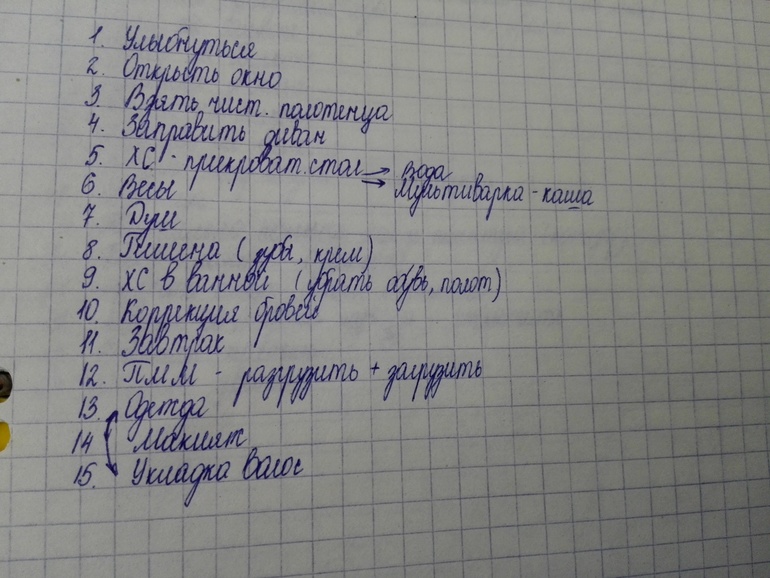 1. Улыбнуться
2. Открыть окно
3. Взять чист. полотенца
4. Заправить диван
5. ХС - прикроват. стол → Вода
→ Мультиварка - каша
6. Весы
7. Душ
8. Гигиена (зубы, крем)
9. ХС в ванной (убрать обувь, полот)
10. Коррекция бровей
11. Завтрак
12. ПММ - разгрузить + загрузить
13. Одежда
14 Макияж
15. Укладка волос